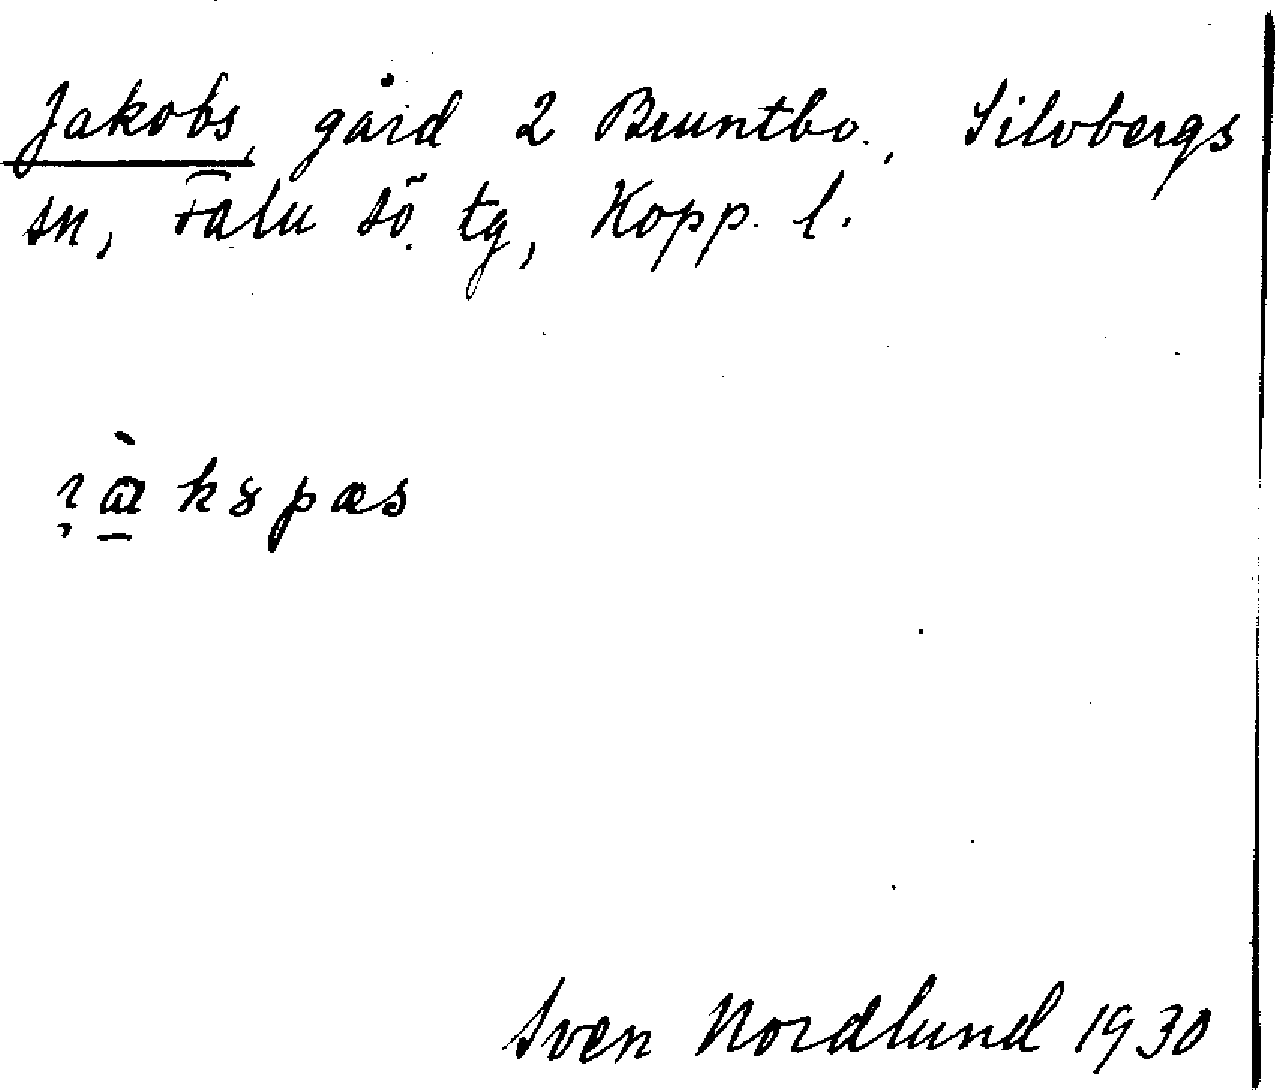 Jakobs, gård 2 Bruntbo., Silvbergs
sn, Falu sö. tg, Kopp. l.
Sven Nordlund 1930